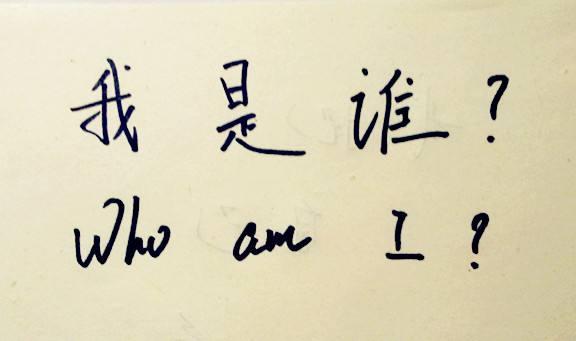 我是谁?
Who am I?